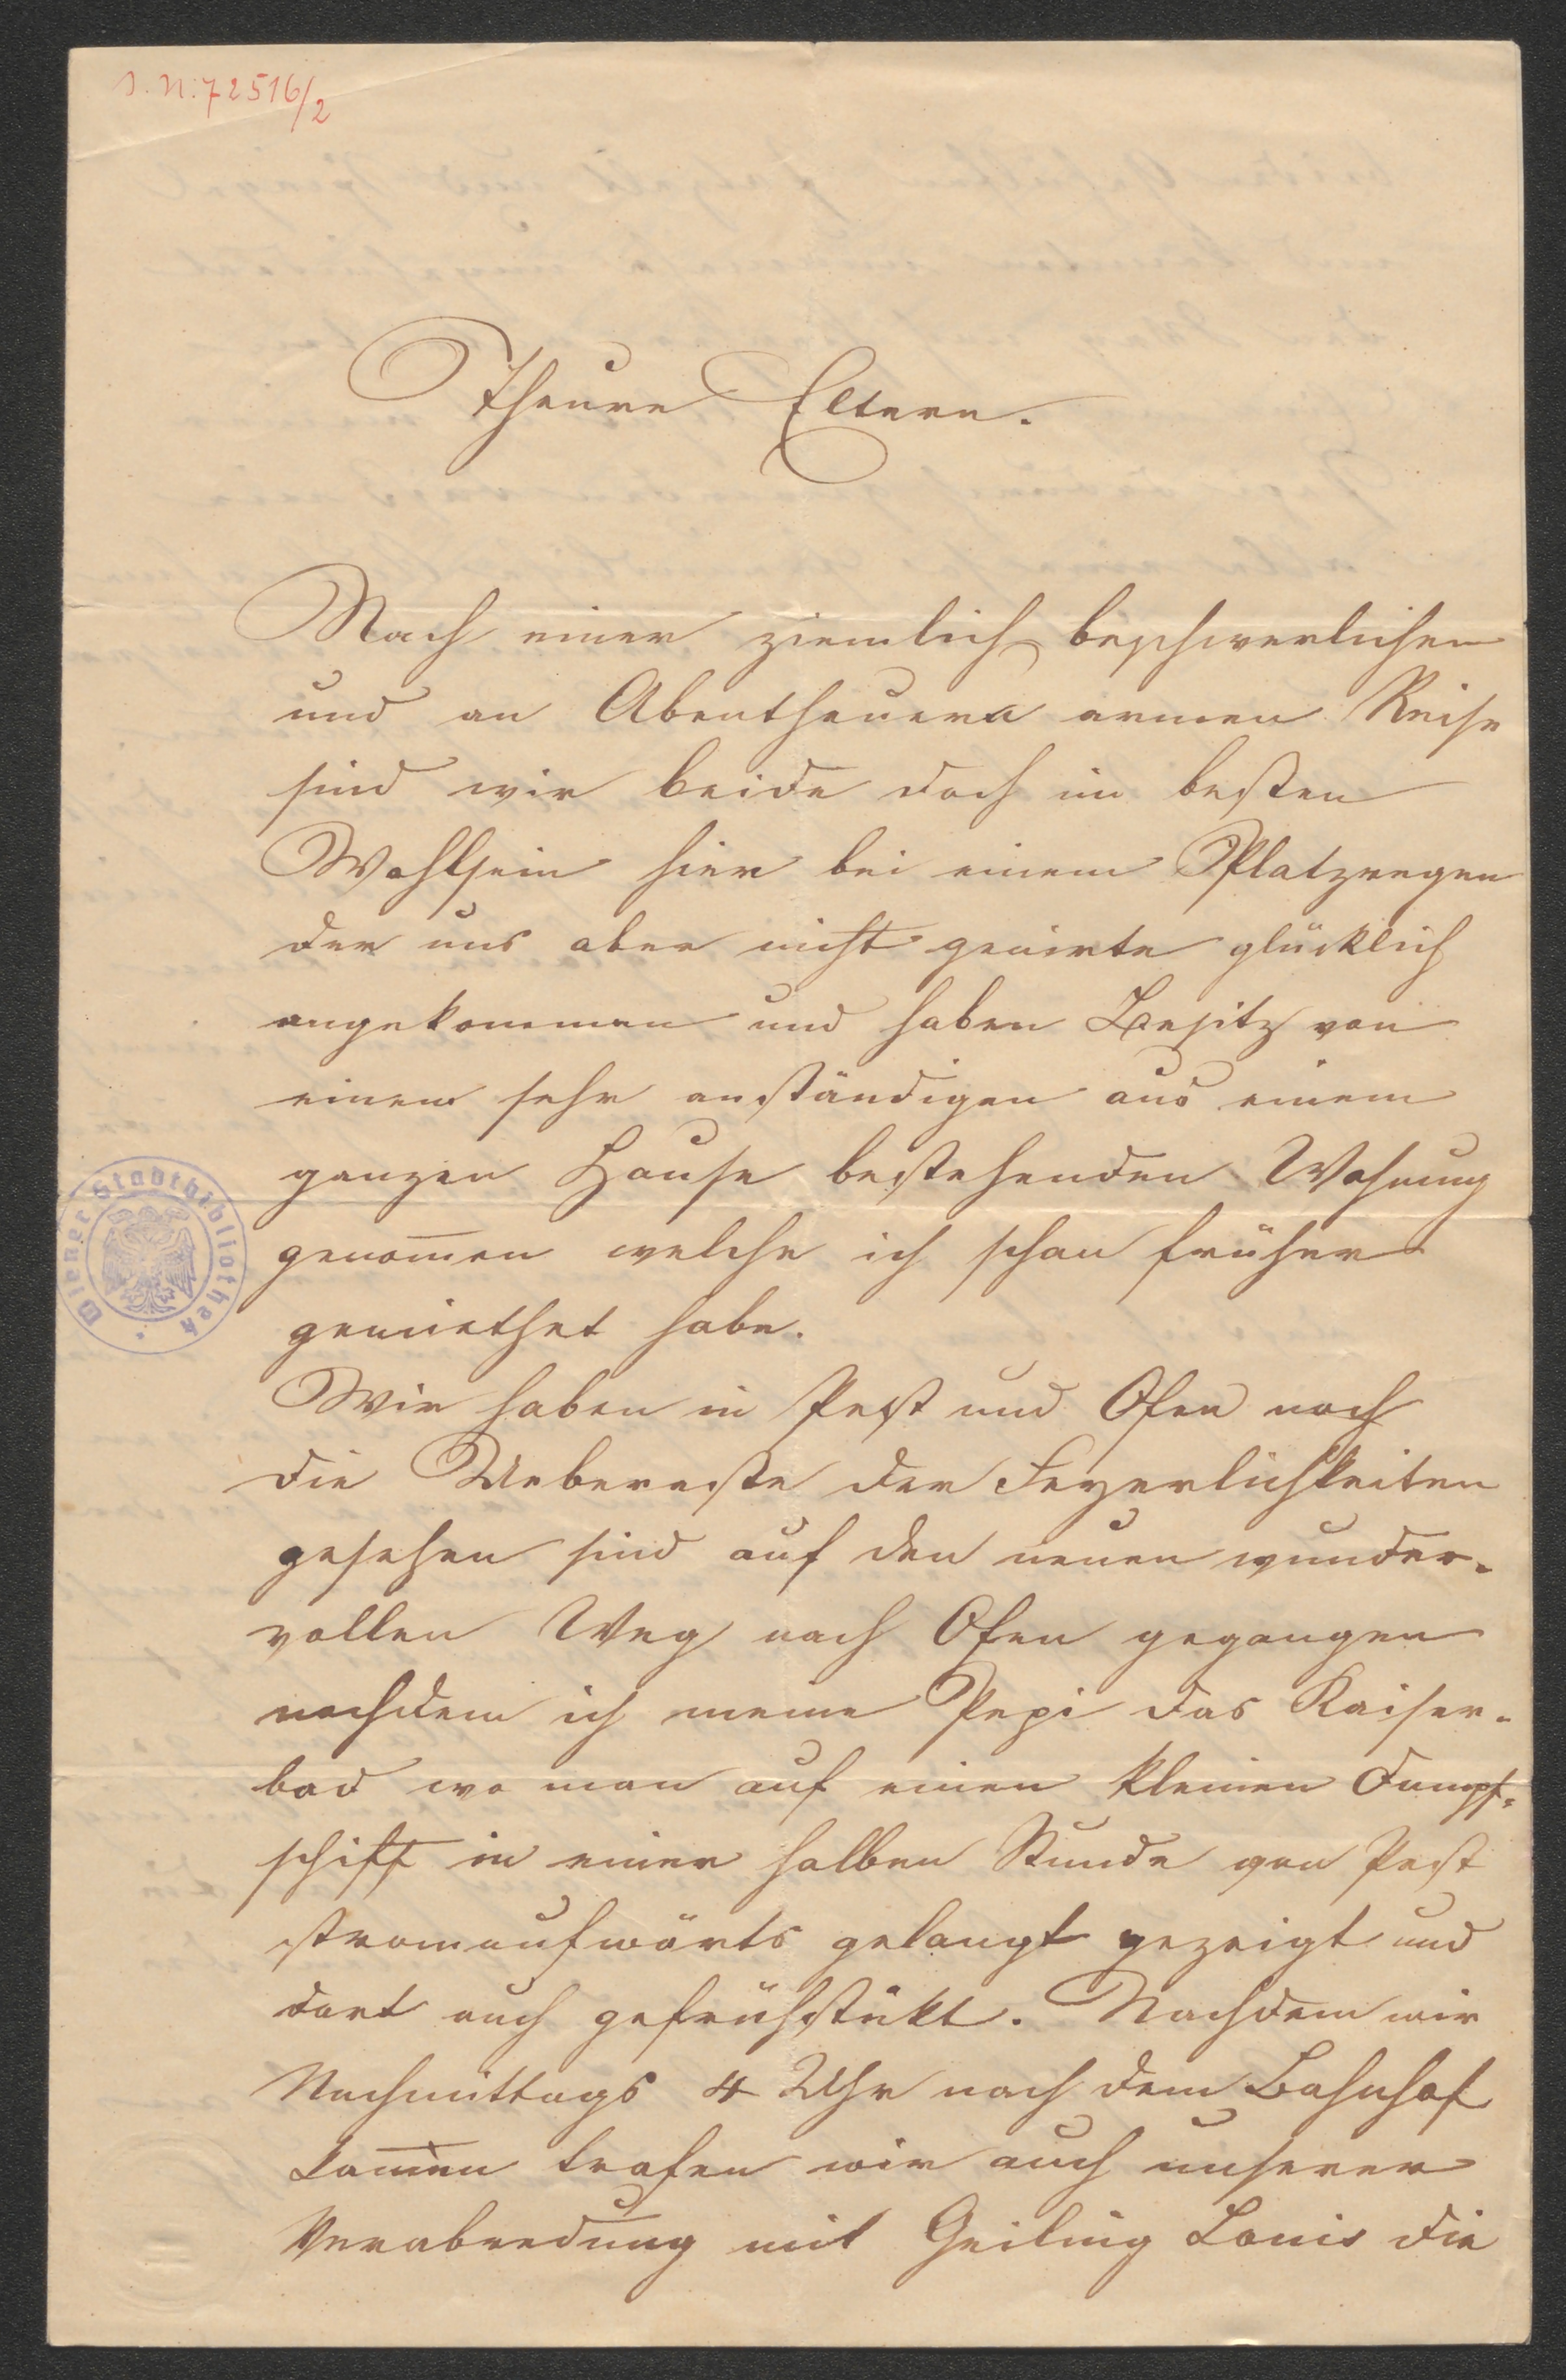 I. N: 72516/2
Theure Eltern.
Nach einer ziemlich beschwerlichen
und an Abentheuern armen Reise
sind wir beide doch im besten
Wohlsein hier bei einem Platzregen
der uns aber nicht genirte glücklich
angekommen und haben Besitz von
einem sehr anständigen aus einem
ganzen Hause bestehenden Wohnung
genom̅en welche ich schon früher
gemiethet habe.
Wir haben in Pest und Ofen noch
die Uebereste der Feyerlichkeiten
gesehen sind auf den neuen wunder-
vollen Weg nach Ofen gegangen
nachdem ich meine Pepi das Kaiser-
bad wo man auf einen kleinen Dampf-
schiff in einer halben Stunde von Pest
stromaufwärts gelangt gezeigt und
dort auch gefrühstükt. Nachdem wir
Nachmittags 4 Uhr nach dem Bahnhof
kam̅en trafen wir auch unserer
Verabredung mit Geiling Louis die
Wiener Stadtbibliothek